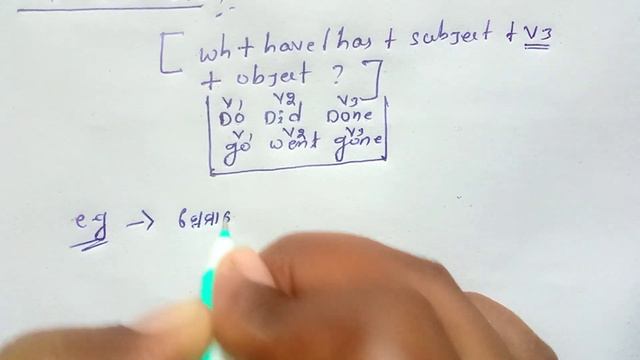 [ wh + have/has + subject + V3
+ object ? ]
V1 V2 V3
Do Did Done
V1 V2 V3
go went gone
eg →